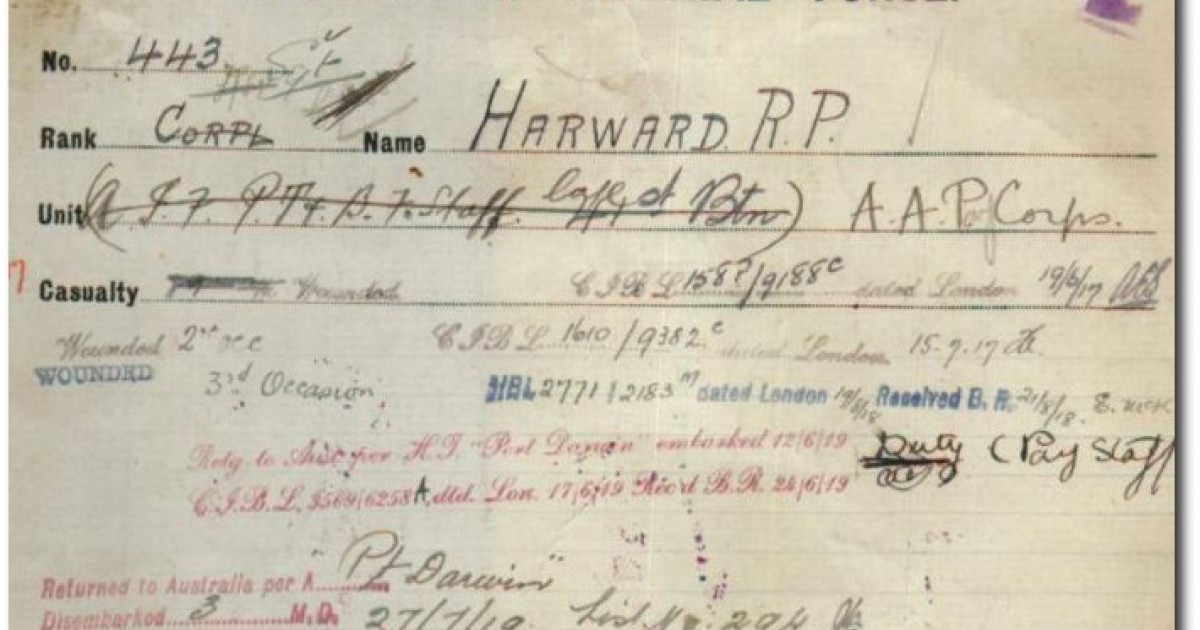 No. 443
Rank CORPL Name HARWARD R.P.
Unit (A.I.F. Staff. Btn) A.A.P. Corps.
Casualty Wounded C I B L 158?/9188c dated London 19/6/17
Wounded 2nd occ C I B L 1610/9382.c dated London 15.7.17
WOUNDED 3rd Occasion HBL 2771/2183m dated London 19/8/18 Received B.R. 21/8/18.
Retg. to Aust per H.T. "Port Darwin" embarked 12/6/19 Duty (Pay Staff
C.I.B.L. 3569/6258A. dtd. Lon. 17/6/19 Rec'd B.R. 24/6/19
Returned to Australia per "Pt Darwin"
Disembarked 3 M.D. 27/7/19. List No. 294